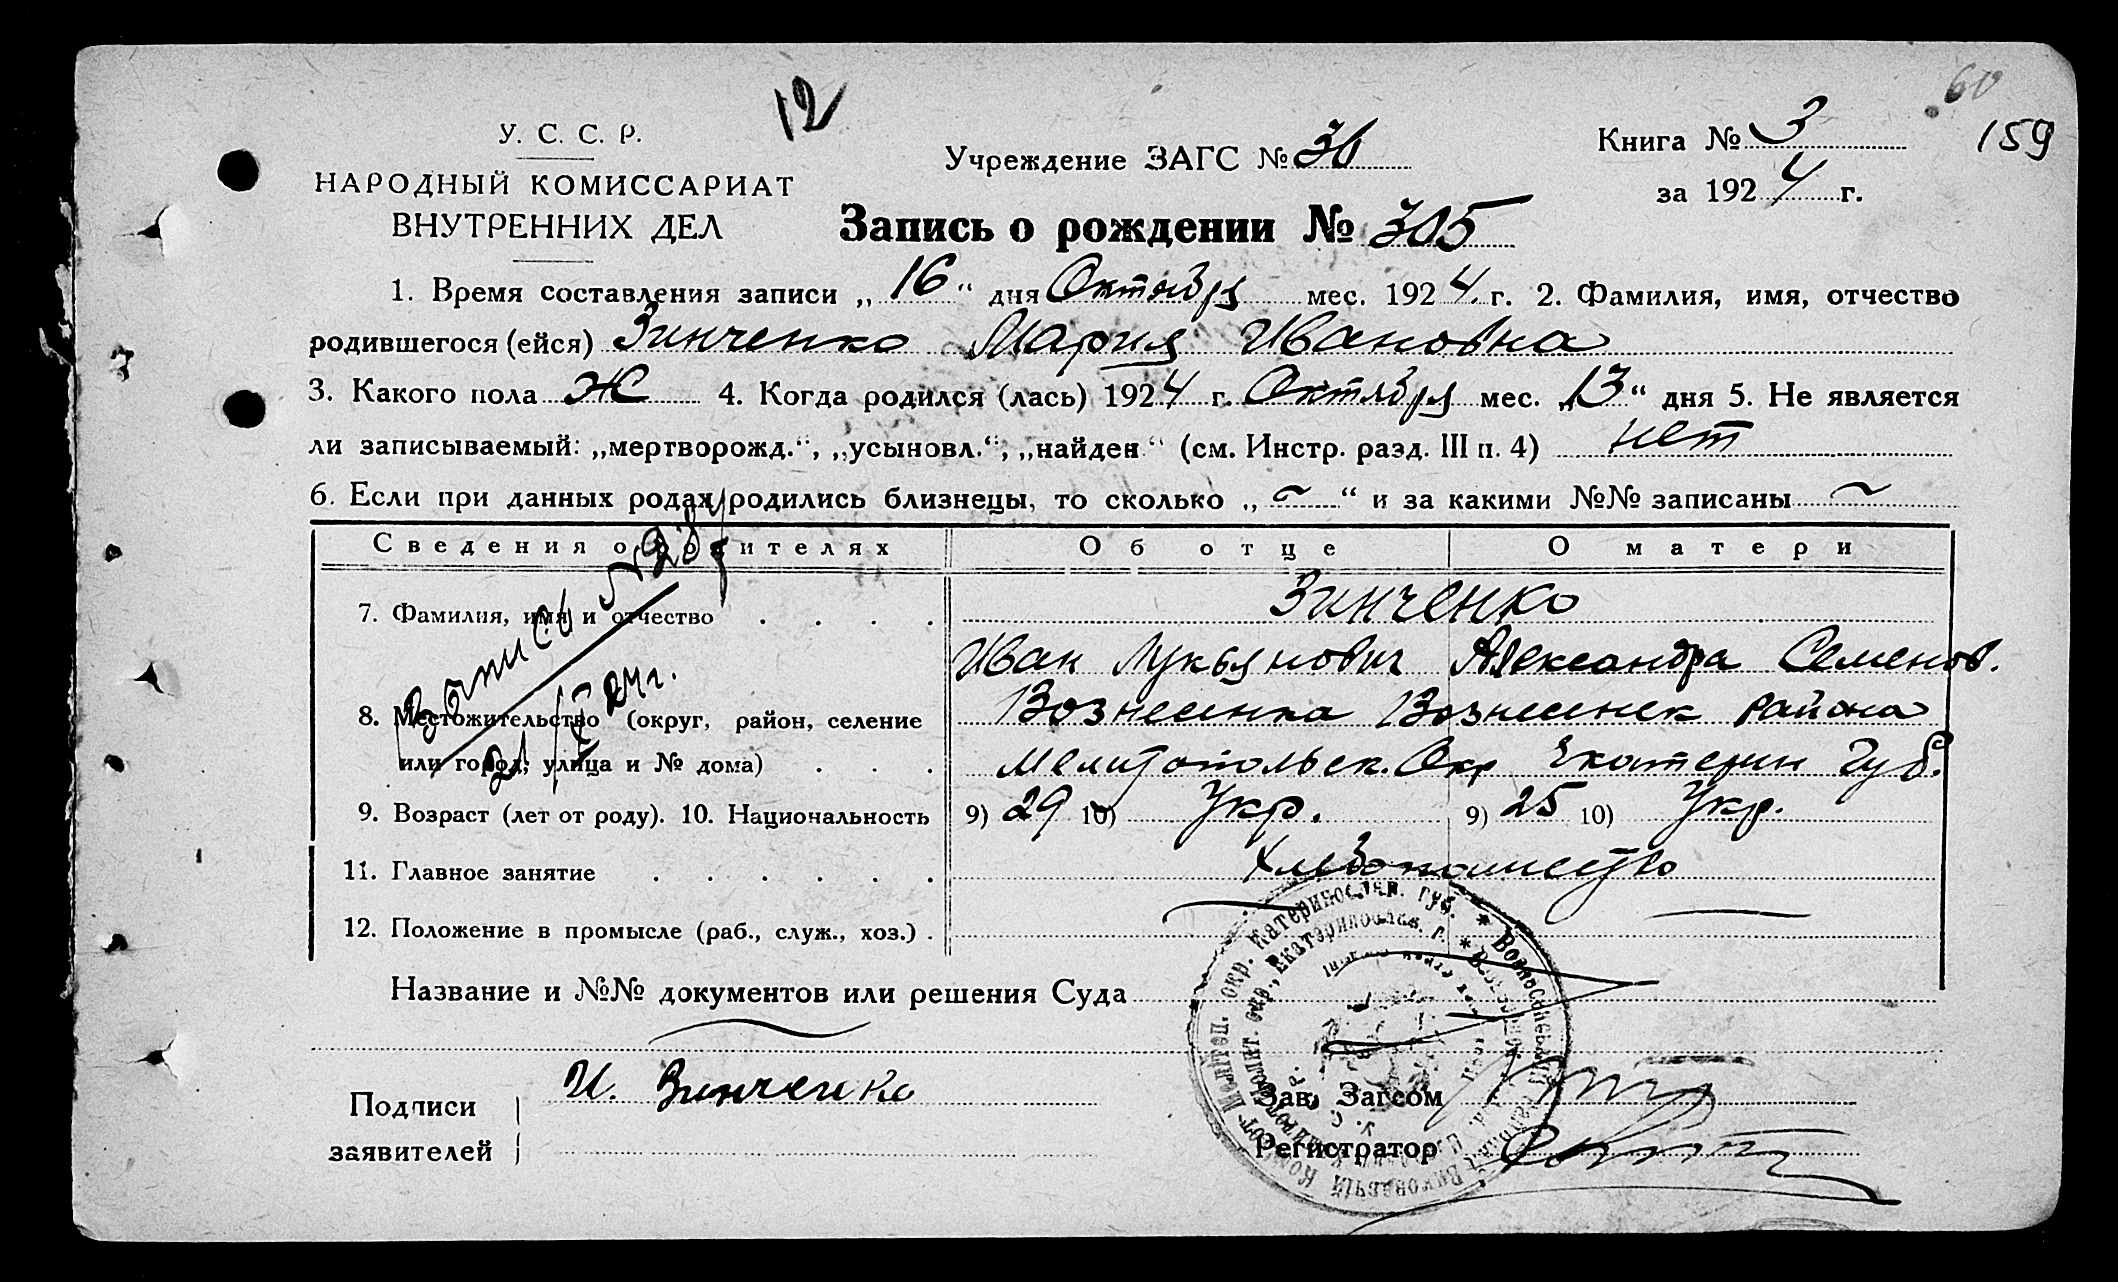 60
12
У. С. С. Р.
Учреждение ЗАГС № 30
Книга № 3
159
НАРОДНЫЙ КОМИССАРИАТ
за 1924 г.
ВНУТРЕННИХ ДЕЛ
Запись о рождении № 305
1. Время составления записи „16“ дня Октября мес. 1924 г. 2. Фамилия, имя, отчество
родившегося (ейся) Зинченко Мария Ивановна
3. Какого пола Ж 4. Когда родился (лась) 1924 г. Октября мес. „13“ дня 5. Не является
ли записываемый: „мертворожд.“, „усыновл.“, „найден“ (см. Инстр. разд. III п. 4) нет
6. Если при данных родах родились близнецы, то сколько „~“ и за какими №№ записаны ~
Сведения о родителях Об отце О матери
7. Фамилия, имя и отчество Зинченко
Иван Лукьянович Александра Семенов.
8. Местожительство (округ, район, селение Вознесенка Вознесенск района
или город, улица и № дома) Мелитопольск. Окр Екатерин Губ.
9. Возраст (лет от роду). 10. Национальность 9) 29 10) Укр. 9) 25 10) Укр.
11. Главное занятие Хлебопашество
12. Положение в промысле (раб., служ., хоз.)
Название и №№ документов или решения Суда
Подписи
заявителей
И. Зинченко
Зав. Загсом
Регистратор